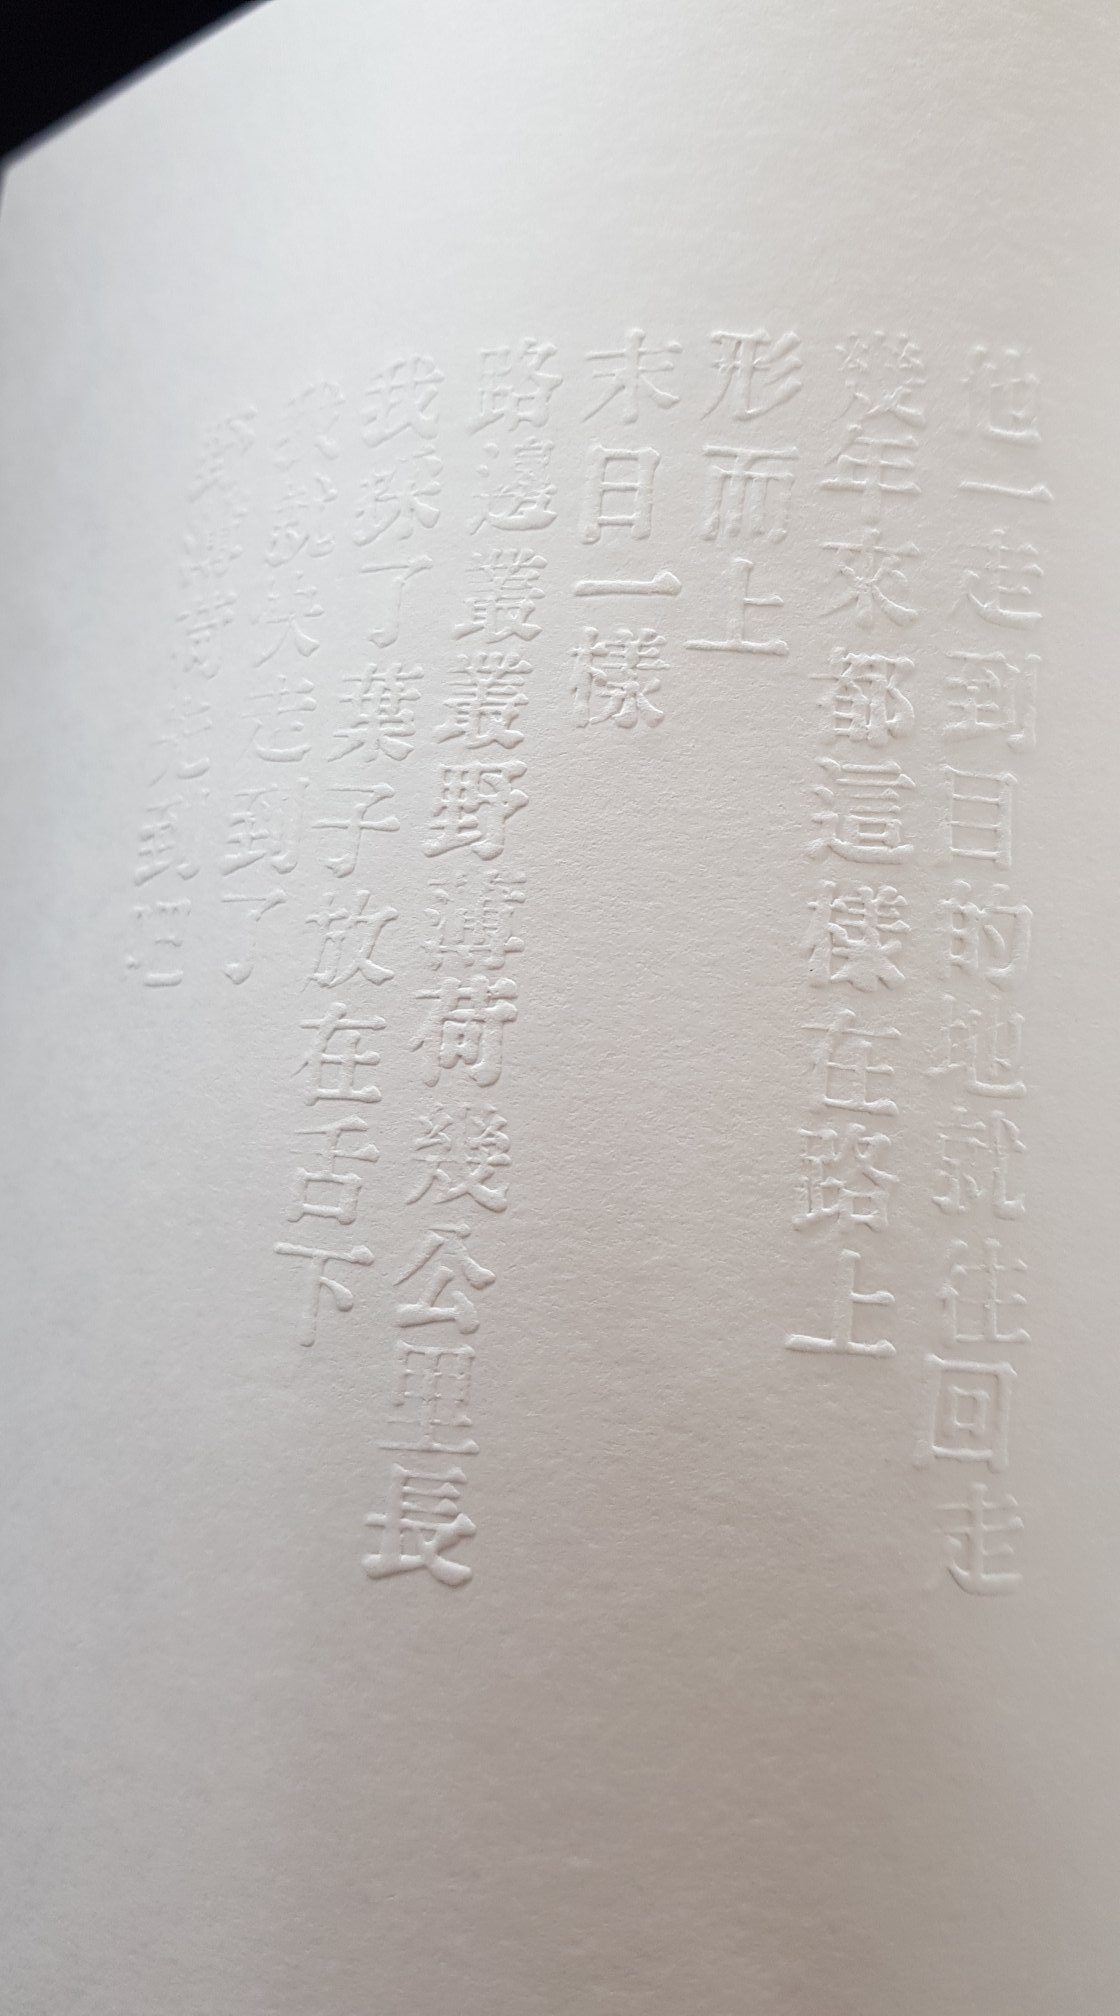 他一走到目的地就往回走
幾年來都這樣在路上
形而上
末日一樣
路邊叢叢野薄荷幾公里長
我採了葉子放在舌下
我就快走到了
薄荷到